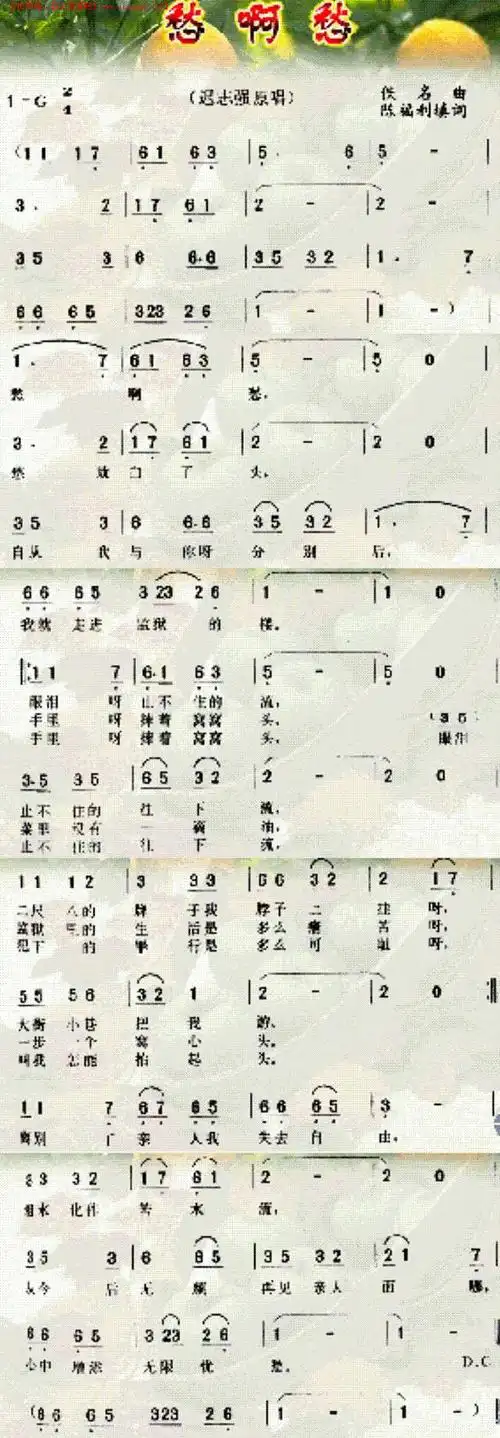 愁啊愁
1=G 2/4
(迟志强原唱)
佚名曲
陈福利填词
(1 1 1 7 | 6 1 6 3 | 5 · 6 | 5 - |
3 · 2 | 1 7 6 1 | 2 - | 2 - |
3 5 3 | 6 6·6 | 3 5 3 2 | 1 · 7 |
6 6 6 5 | 3 2 3 2 6 | 1 - | 1 - )
1 · 7 | 6 1 6 3 | 5 - | 5 0 |
愁 啊 愁,
3 · 2 | 1 7 6 1 | 2 - | 2 0 |
愁 就 白 了 头,
3 5 3 | 6 6·6 | 3 5 3 2 | 1 · 7 |
自从 我 与 你呀 分 别 后,
6 6 6 5 | 3 2 3 2 6 | 1 - | 1 0
我就 走进 监狱 的 楼。
1 1 7 | 6·1 6 3 | 5 - | 5 0 |
眼泪 呀 止不 住的 流,
手里 呀 捧着 窝窝 头, (3 5)
手里 呀 捧着 窝窝 头, 眼泪
3·5 3 5 | 6 5 3 2 | 1 - | 1 0 |
止不 住的 往 下 流,
菜里 没有 一 滴 油,
止不 住的 往 下 流,
1 1 1 2 | 3 3 3 | 6 6 3 2 | 2 1 7 |
二尺 八的 牌 子我 脖子 上 挂 呀,
监狱 里的 生 活是 多么 痛 苦 呀,
犯下 的 罪 行是 多么 可 耻 呀,
5 5 5 6 | 3 2 1 | 2 - | 2 0
大街 小巷 把 我 游。
一步 一个 窝 心 头。
叫我 怎能 抬 起 头。
1 1 7 | 6 7 6 5 | 6 6 6 5 | 3 -
离别 了 亲 人我 失去 自 由,
3 3 3 2 | 1 7 6 1 | 2 - | 2 0
泪水 化作 苦 水 流,
3 5 3 | 6 6 5 | 3 5 3 2 | 2 1 7 |
从今 后 无 颜 再见 亲人 面 哪,
6 6 6 5 | 3 2 3 2 6 | 1 - | 1 -
心中 增添 无限 忧 愁。 D.C
(6 6 6 5 | 3 2 3 2 6 | 1 - | 1 - )